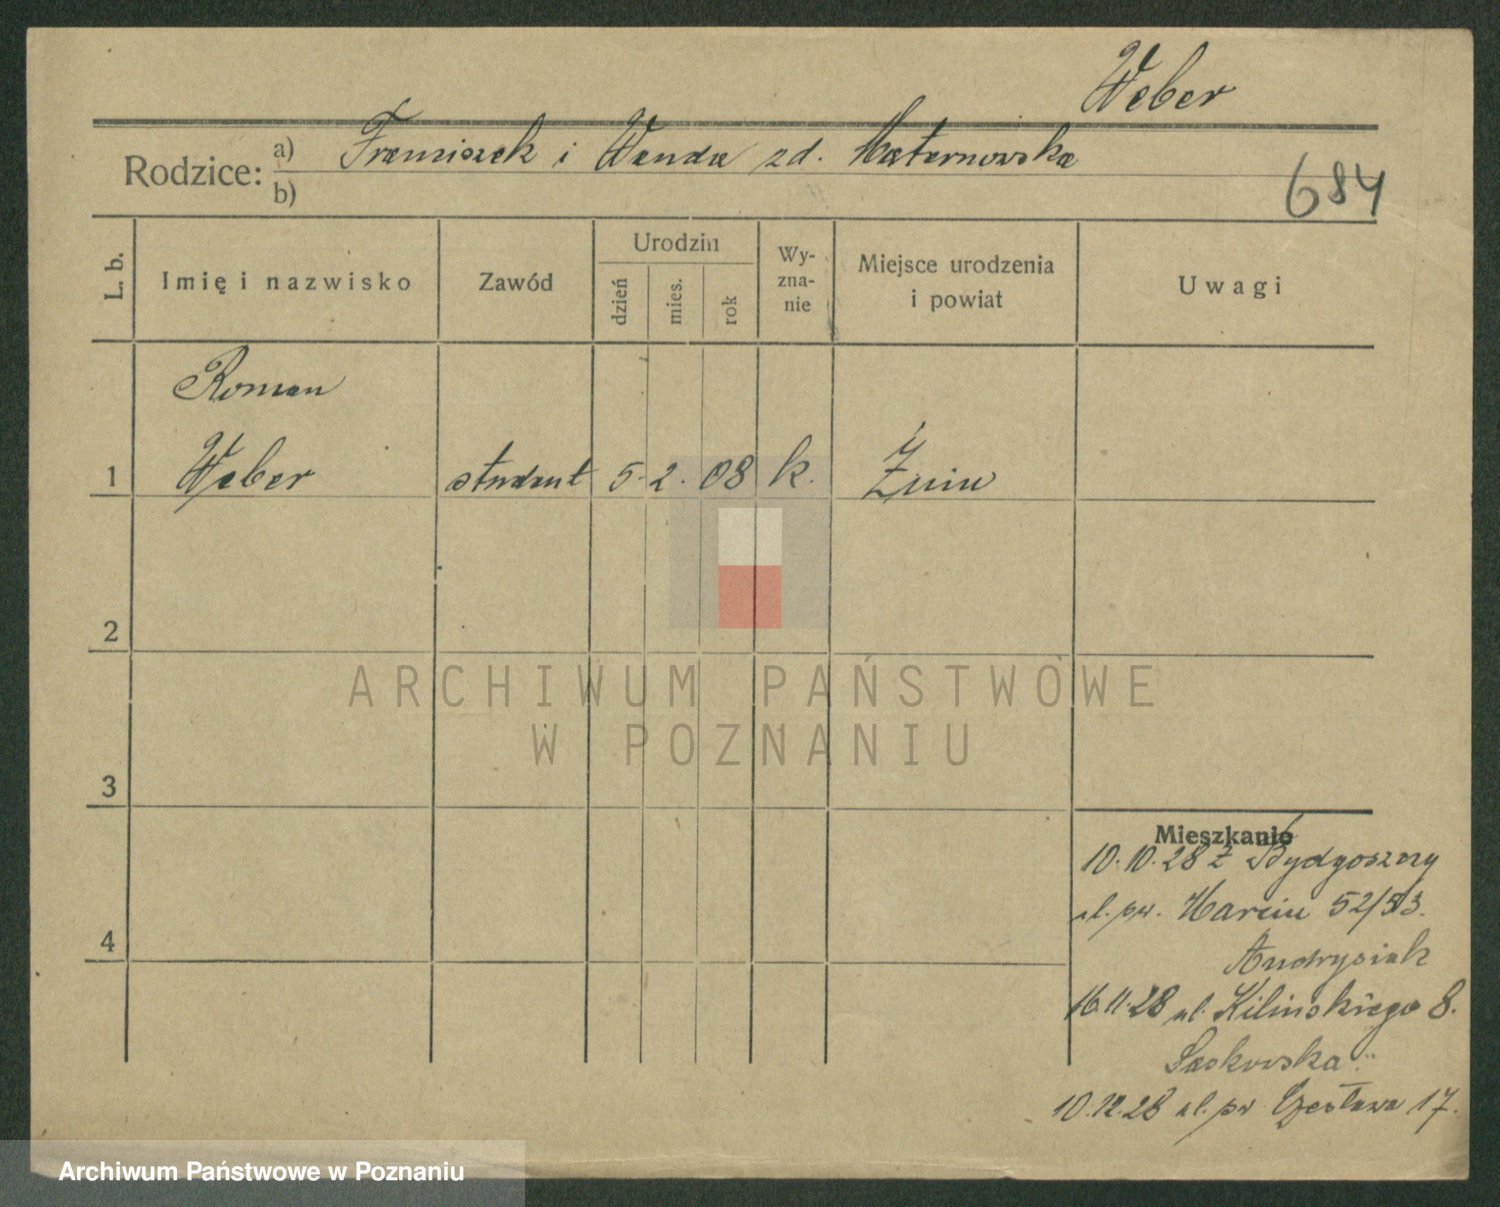 Weber
Rodzice: a) Franciszek i Wanda zd. Maternowska
b)
684
L. b.
Imię i nazwisko
Zawód
Urodzin
dzień
mies.
rok
Wy-
zna-
nie
Miejsce urodzenia
i powiat
Uwagi
Roman
1 Weber student 5. 2. 08 k. Żnin
2
3
4
Mieszkanie
10.10.28 z Bydgoszczy
ul. św. Marcin 52/53.
Andrysiak
16.11.28 ul. Kilinskiego 8.
Laskowska
10.12.28 ul. św Czesława 17.
ARCHIWUM PAŃSTWOWE
W POZNANIU
Archiwum Państwowe w Poznaniu